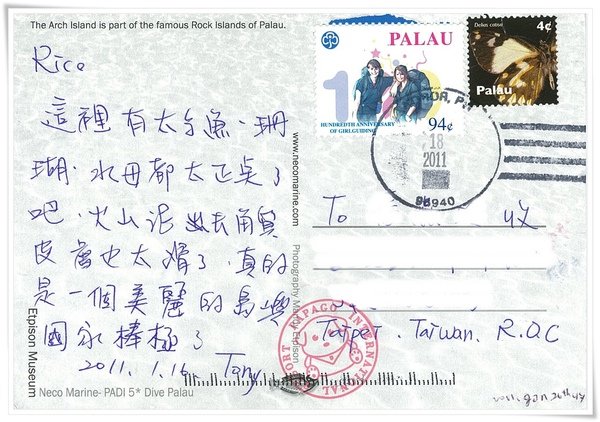 The Arch Island is part of the famous Rock Islands of Palau.
Rico
這裡有太多魚、珊
瑚、水母都太正點了
吧、火山泥去角質
皮膚也太滑了、真的
是一個美麗的島嶼
國家棒極了
2011. 1. 16. Tony
Etpison Museum
Neco Marine- PADI 5* Dive Palau
www.necomarine.com
Photography Mandy Etpison
PALAU
HUNDREDTH ANNIVERSARY
OF GIRLGUIDING
94¢
Delias catisa
4¢
Palau
18
2011
96940
To
Taipei. Taiwan. R.O.C
INTERNATIONAL